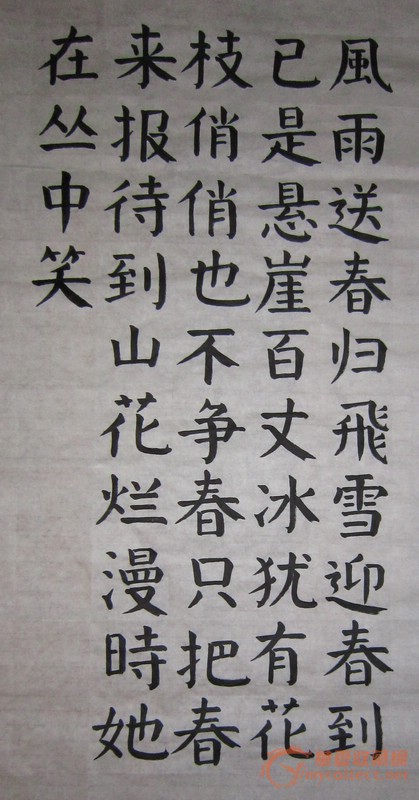 風雨送春归飛雪迎春到
已是悬崖百丈冰犹有花
枝俏俏也不争春只把春
来报待到山花烂漫時她
在丛中笑